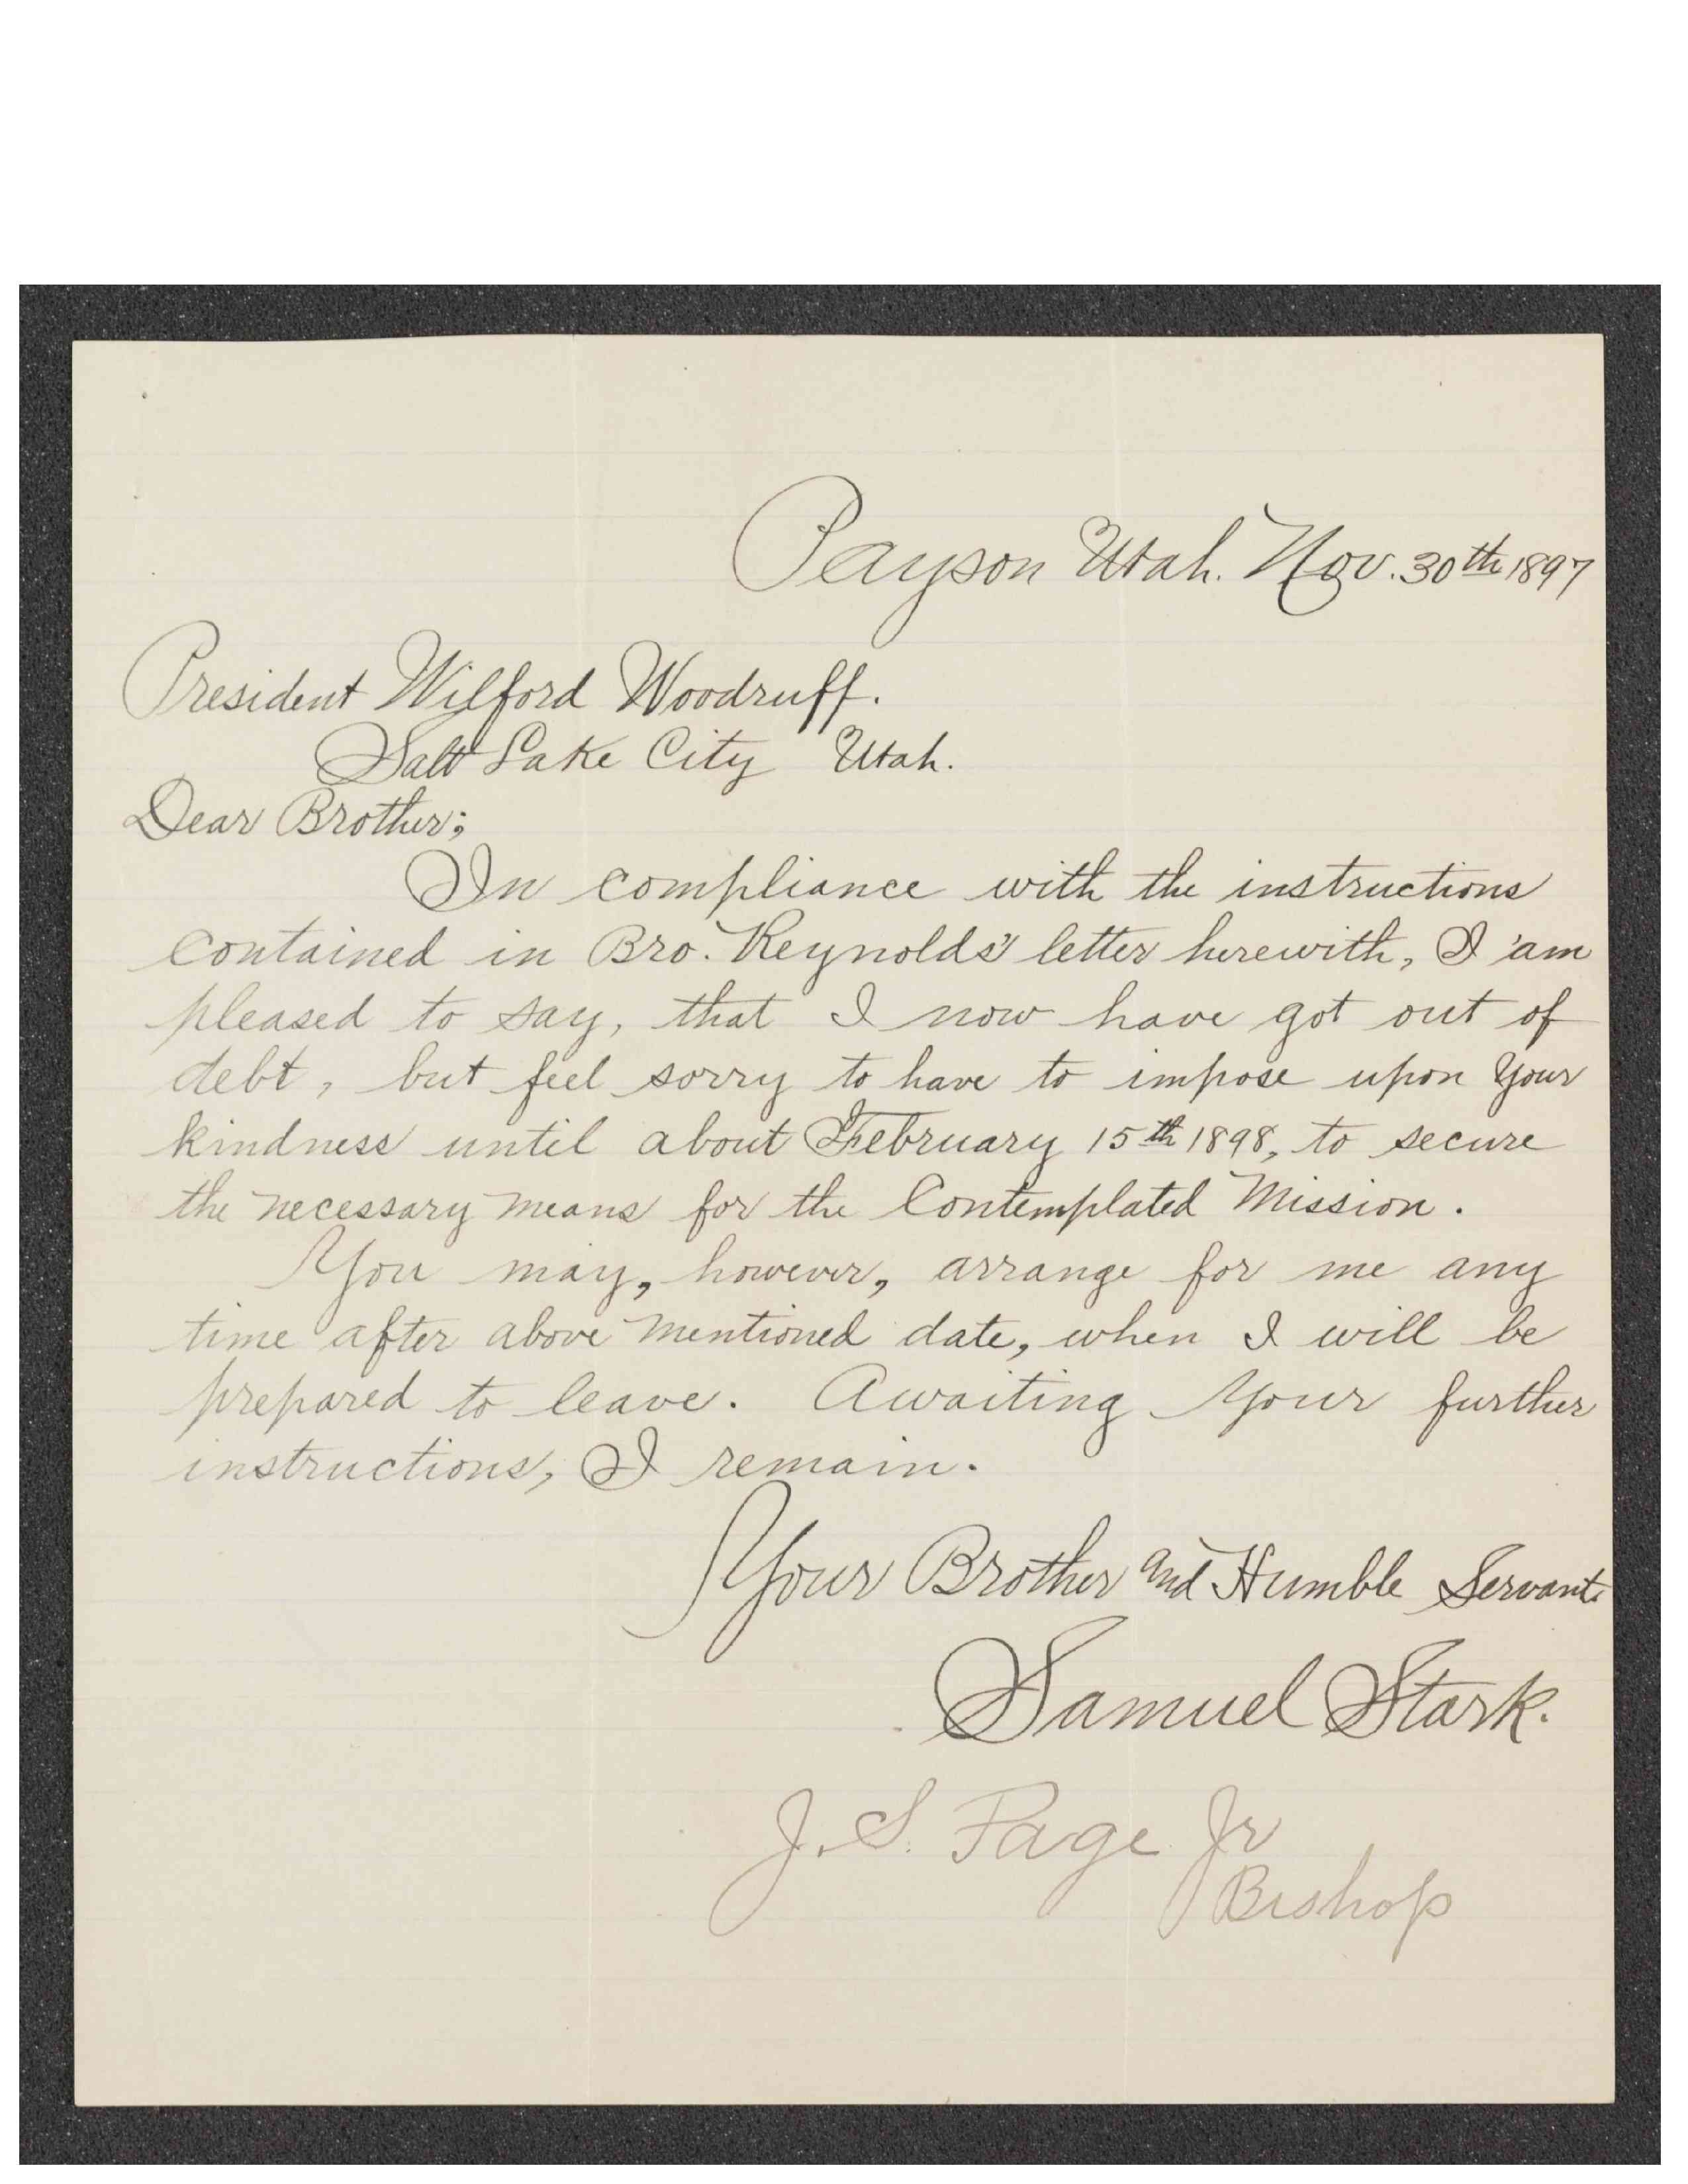 Payson Utah. Nov. 30th 1897
President Wilford Woodruff.
Salt Lake City Utah.
Dear Brother;
In compliance with the instructions
contained in Bro. Reynolds' letter herewith, I am
pleased to say, that I now have got out of
debt, but feel sorry to have to impose upon your
kindness until about February 15th 1898, to secure
the necessary means for the Contemplated Mission.
You may, however, arrange for me any
time after above mentioned date, when I will be
prepared to leave. Awaiting your further
instructions, I remain.
Your Brother and Humble Servant.
Samuel Stark.
J. S. Page Jr
Bishop